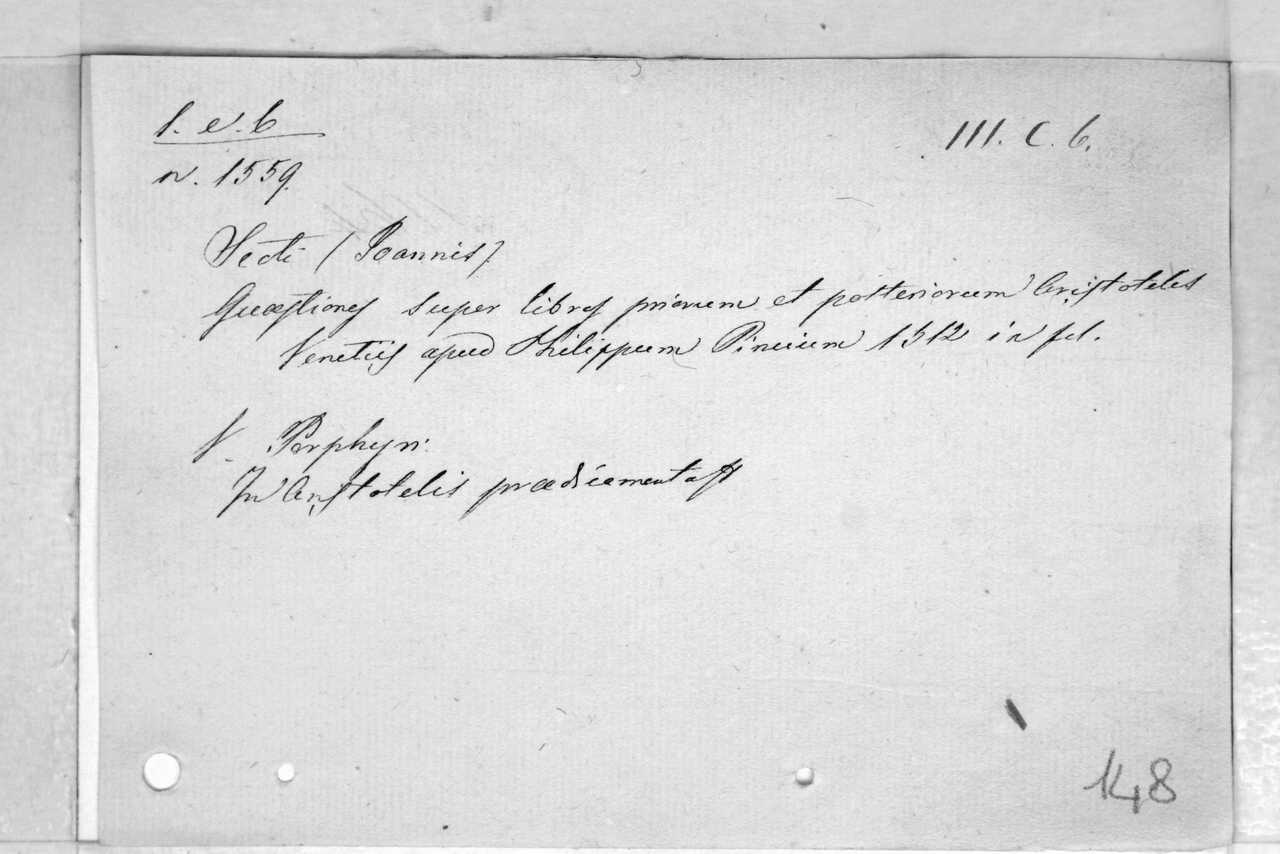 l. e. b
III. C. 6.
n. 1559.
Scoti (Joannis)
Quæstiones super libros priorum et posteriorum Aristotelis
Venetiis apud Philippum Pincium 1512 in fol.
V. Porphyri
In Aristotelis prædicamenta
148